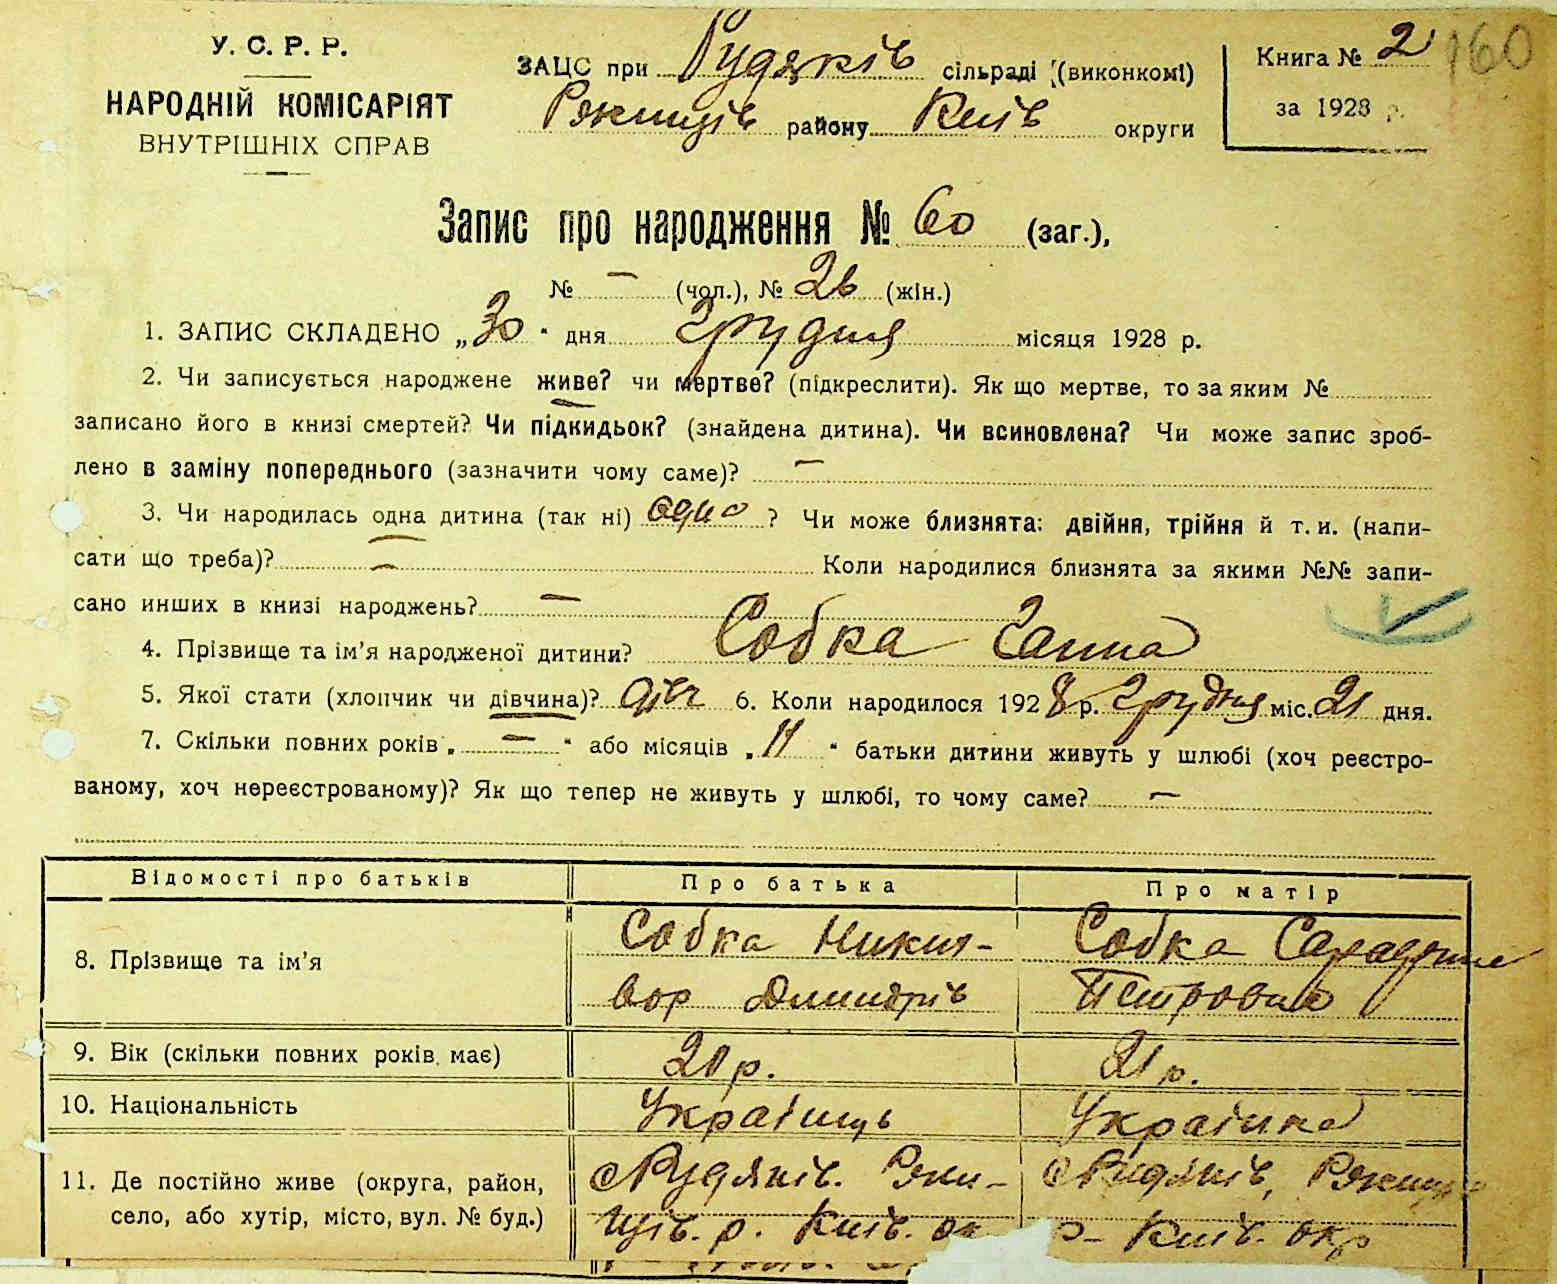 У. С. Р. Р.
НАРОДНІЙ КОМІСАРІЯТ
ВНУТРІШНІХ СПРАВ
ЗАЦС при Рудяків сільраді (виконкомі)
Ржищів району Київ округи
Книга № 2
за 1928 р.
160
Запис про народження № 60 (заг.),
№ – (чол.), № 26 (жін.)
1. ЗАПИС СКЛАДЕНО „30“ дня Грудня місяця 1928 р.
2. Чи записується народжене живе? чи мертве? (підкреслити). Як що мертве, то за яким №
записано його в книзі смертей? Чи підкидьок? (знайдена дитина). Чи всиновлена? Чи може запис зроб-
лено в заміну попереднього (зазначити чому саме)? –
3. Чи народилась одна дитина (так ні) одно ? Чи може близнята: двійня, трійня й т. и. (напи-
сати що треба)? – Коли народилися близнята за якими №№ запи-
сано инших в книзі народжень? –
4. Прізвище та ім’я народженої дитини? Собка Ганна
5. Якої стати (хлопчик чи дівчина)? дівч 6. Коли народилося 1928 р. Грудня міс. 21 дня.
7. Скільки повних років „ – “ або місяців „ 11 “ батьки дитини живуть у шлюбі (хоч реєстро-
ваному, хоч нереєстрованому)? Як що тепер не живуть у шлюбі, то чому саме? –
Відомості про батьків Про батька Про матір
8. Прізвище та ім’я
Собка Никиѳ-
вор Дмитрів
Собка
Петровна
9. Вік (скільки повних років має) 20 р. 21 р.
10. Національність Українць Українка
11. Де постійно живе (округа, район,
село, або хутір, місто, вул. № буд.)
с Рудяків. Ржи-
щів. р. Київ. ок
с Рудяків, Ржищ
р– Київ. окр